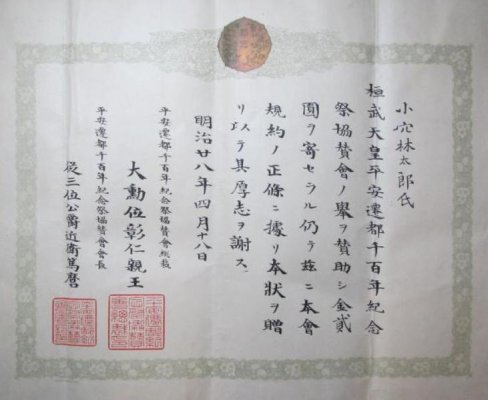 小穴林太郎氏
桓武天皇平安遷都千百年紀念
祭協賛會ノ擧ヲ賛助シ金貳
圓ヲ寄セラル仍テ茲ニ本會
規約ノ正條ニ據リ本状ヲ贈
リ以テ其厚志ヲ謝ス
明治廿八年四月十八日
平安遷都千百年紀念祭協賛會総裁
大勲位彰仁親王
平安遷都千百年紀念祭協賛會會長
従三位公爵近衛篤麿